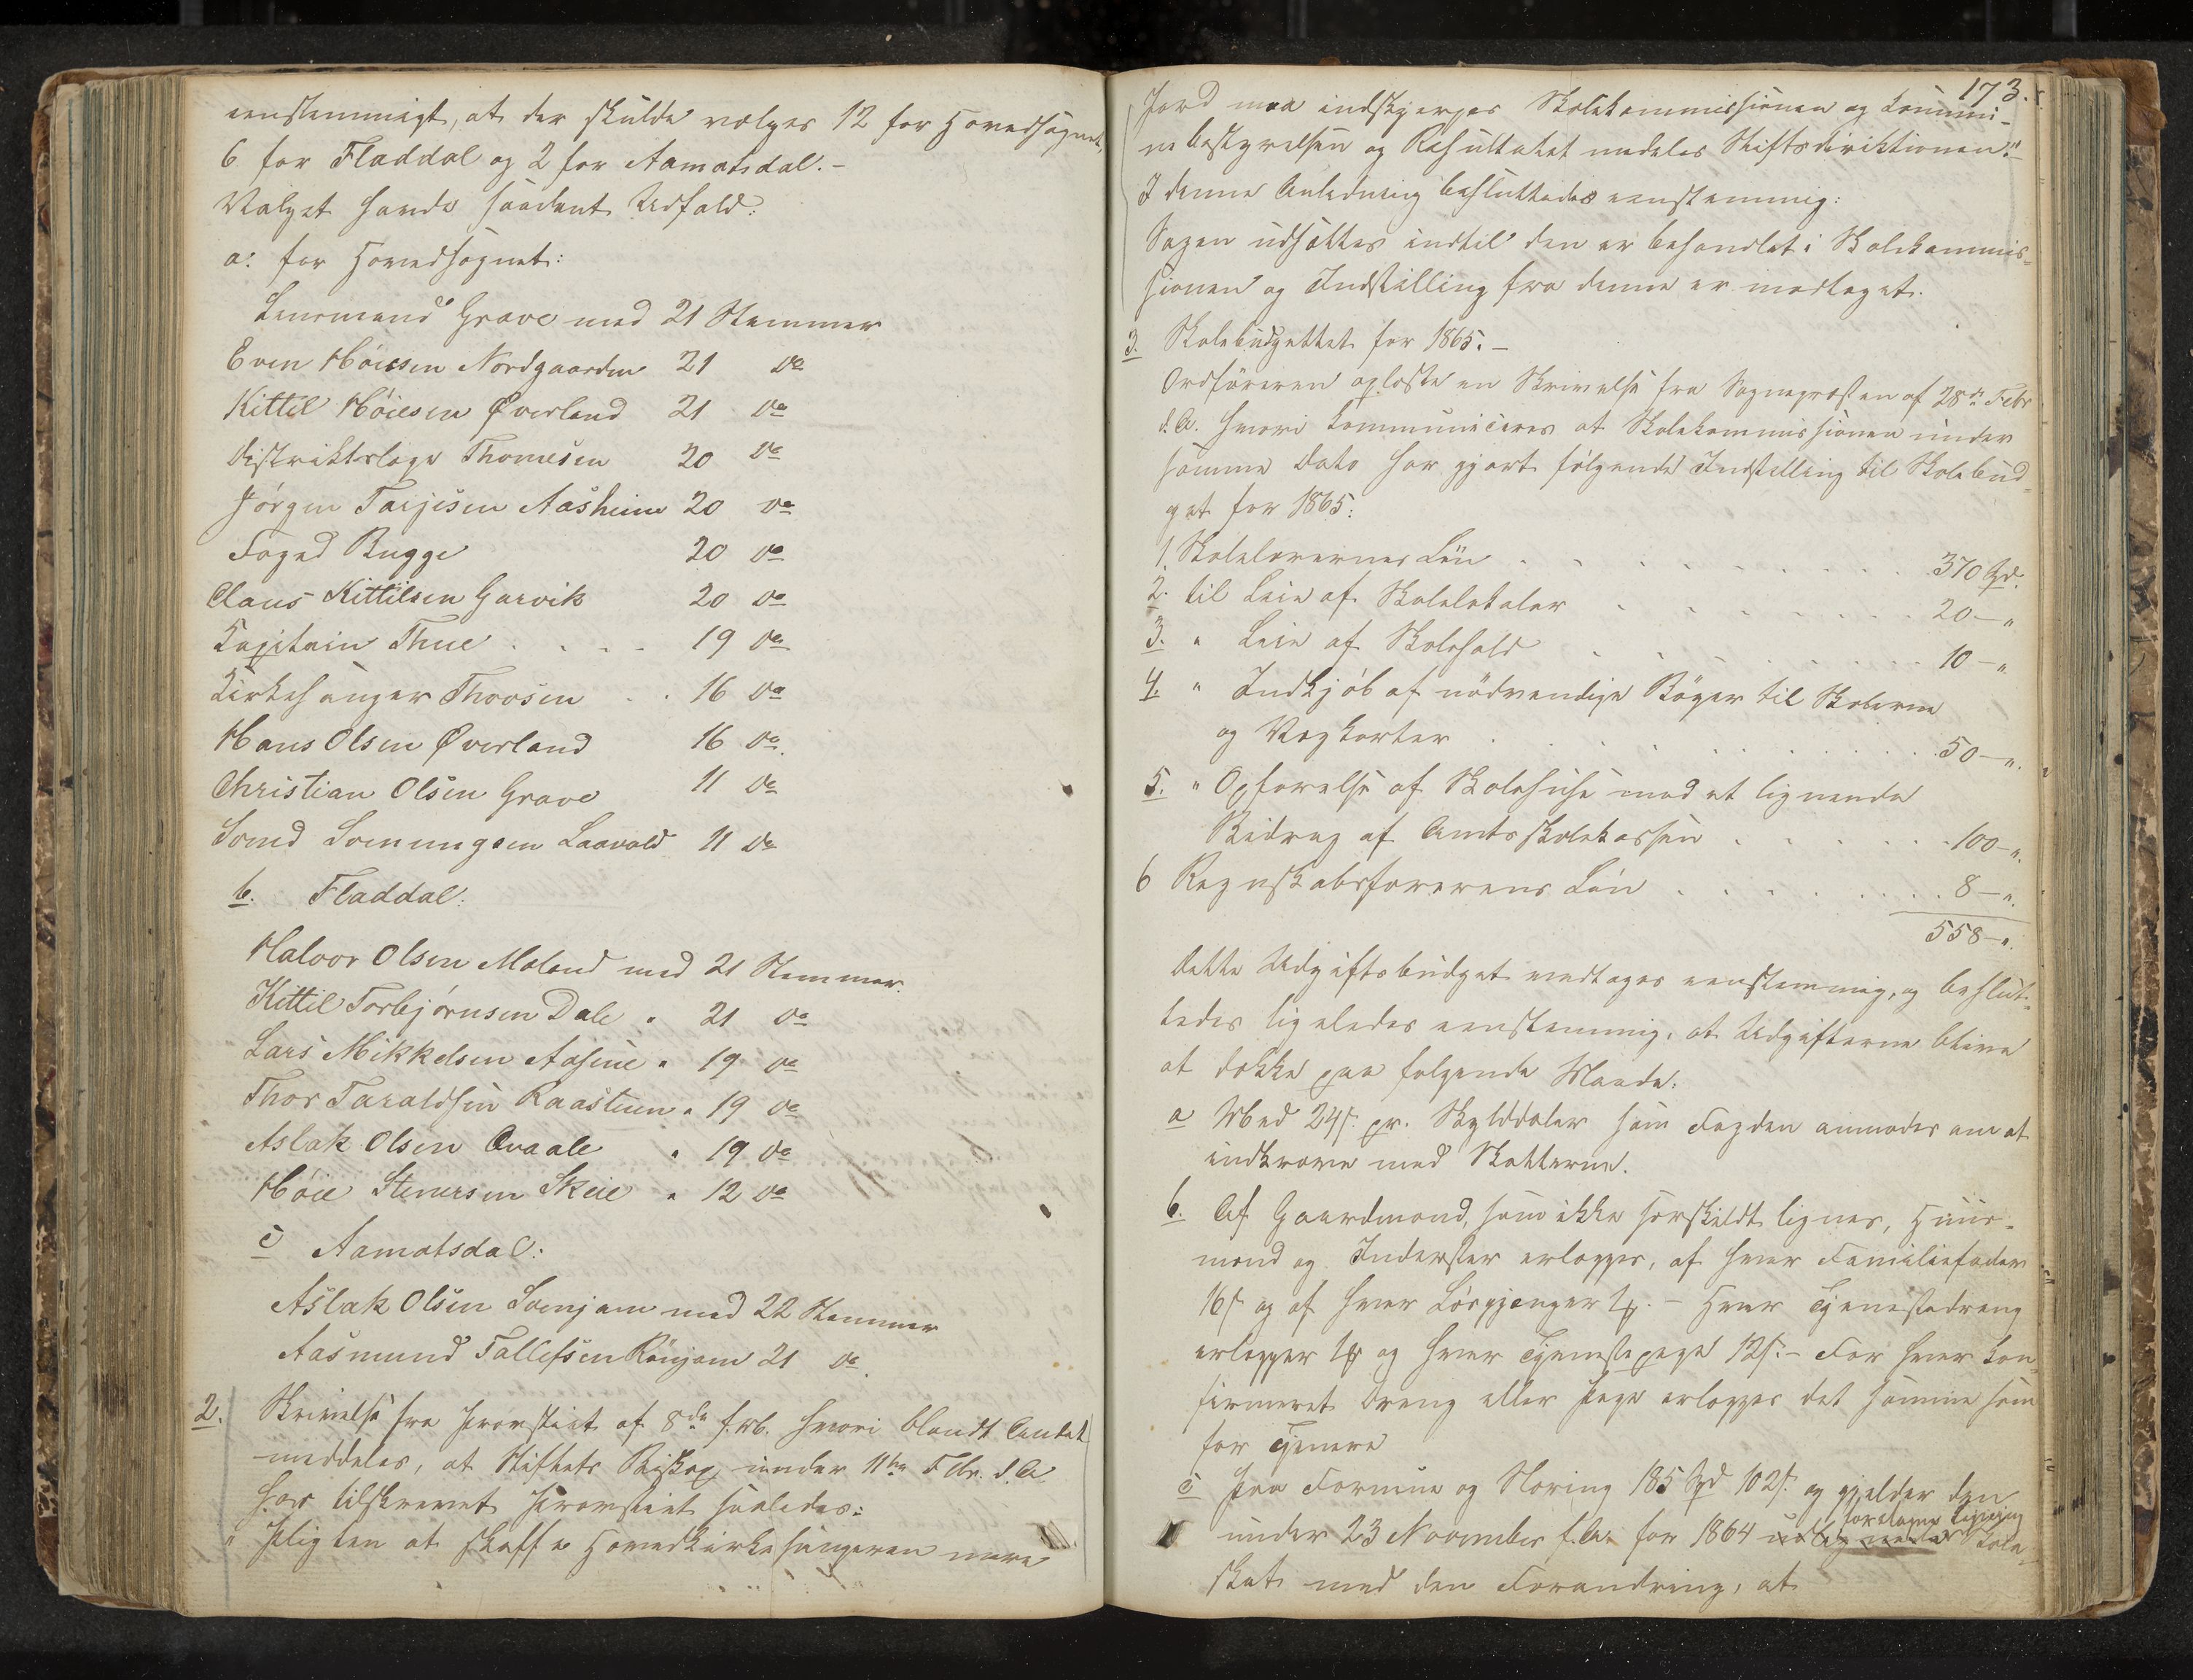 eenstemmigt, at der skulde vælges 12 for Hovedsognet,
6 for Fladdal og 2 for Aamotsdal. -
Valget havde saadant Udfald:
a: for Hovedsognet:
Lensmand Grave med 21 Stemmer
Even Höiesen Nordgaarden 21 do
Kittil Höiesen Øverland 21 do
Distriktslæge Thomesen 20 do
Jörgen Tarjesen Aasheim 20 do
Foged Bugge 20 do
Claus Kittilsen Garvik 20 do
Kapitain Thue . . . . 19 do
Kirkesanger Thorsen . . 16 do
Hans Olsen Øverland 16 do.
Christian Olsen Grave 11 do
Svend Sveinungsen Laavald 11 do
b. Fladdal:
Halvor Olsen Moland med 21 Stemmer.
Kittil Torbjörnsen Dale " 21 do
Lars Mikkelsen Aasene " 19 do
Thor Taraldsen Raasteen " 19 do
Aslak Olsen Qvaale " 19 do
Höie Stenersen Skeie " 12 do
c Aamotsdal:
Aslak Olsen Svenjam med 22 Stemmer
Aasmund Tallefsen Rönjom 21 do.
2. Skrivelse fra Provstiet af 8de f.M. hvori blandt Andet
meddeles, at Stiftets Biskop under 11te Febr. d.A.
har tilskrevet Provstiet saaledes:
" Pligten at skaffe Hovedkirkesangeren mere
173.
Jord maa indskjerpes Skolekommissionen og Kommu-
nebestyrelsen og Resultatet meddeles Stiftsdirektionen."
I denne Anledning besluttedes eenstemmig:
Sagen udsættes indtil den er behandlet i Skolekommis-
sionen og Indstilling fra denne er modtaget.
3. Skolebudgettet for 1865. -
Ordföreren oplæste en Skrivelse fra Sognepræsten af 28de Febr
d.A. hvori kommuniceres at Skolekommissionen under
samme Dato har gjort følgende Indstilling til Skolebud-
get for 1865:
1. Skolelærernes Lön . . . . . . . 370 Spd.
2. til Leie af Skolelokaler . . . . . . 20 - "
3. " Leie af Skolehold . . . . . . 10 - "
4. " Indkjöb af nödvendige Böger til Skolerne
og Vægkarter . . . . . . . . 50 - ".
5. " Opførelse af Skolehuse med et lignende
Bidrag af Amtsskolekassen . . . . . 100 - ".
6 Regnskabsførerens Lön . . . . . . 8 - ".
558 - ".
Dette Udgiftsbudget vedtages eenstemmig, og beslut-
tedes ligeledes eenstemmig, at Udgifterne blive
at dække paa følgende Maade:
a Med 24 s. pr. Skylddaler som Fogden anmodes om at
indkræve med Skatterne.
b. Af Gaardmænd, som ikke særskildt lignes, Huus-
mænd og Inderster erlægges, af hver Familiefader
16 s og af hver Løsgjænger - Hver Tjenestedreng
erlægger og hver Tjenestepige 12 s. - For hver kon-
firmeret Dreng eller Pige erlægges det samme som
for Tjenere
c Paa Formue og Næring 185 Spd 102 s. og gjelder den
under 23 November f.A. for 1864 udlignede foretagne Ligning Skole-
skat med den Forandring, at